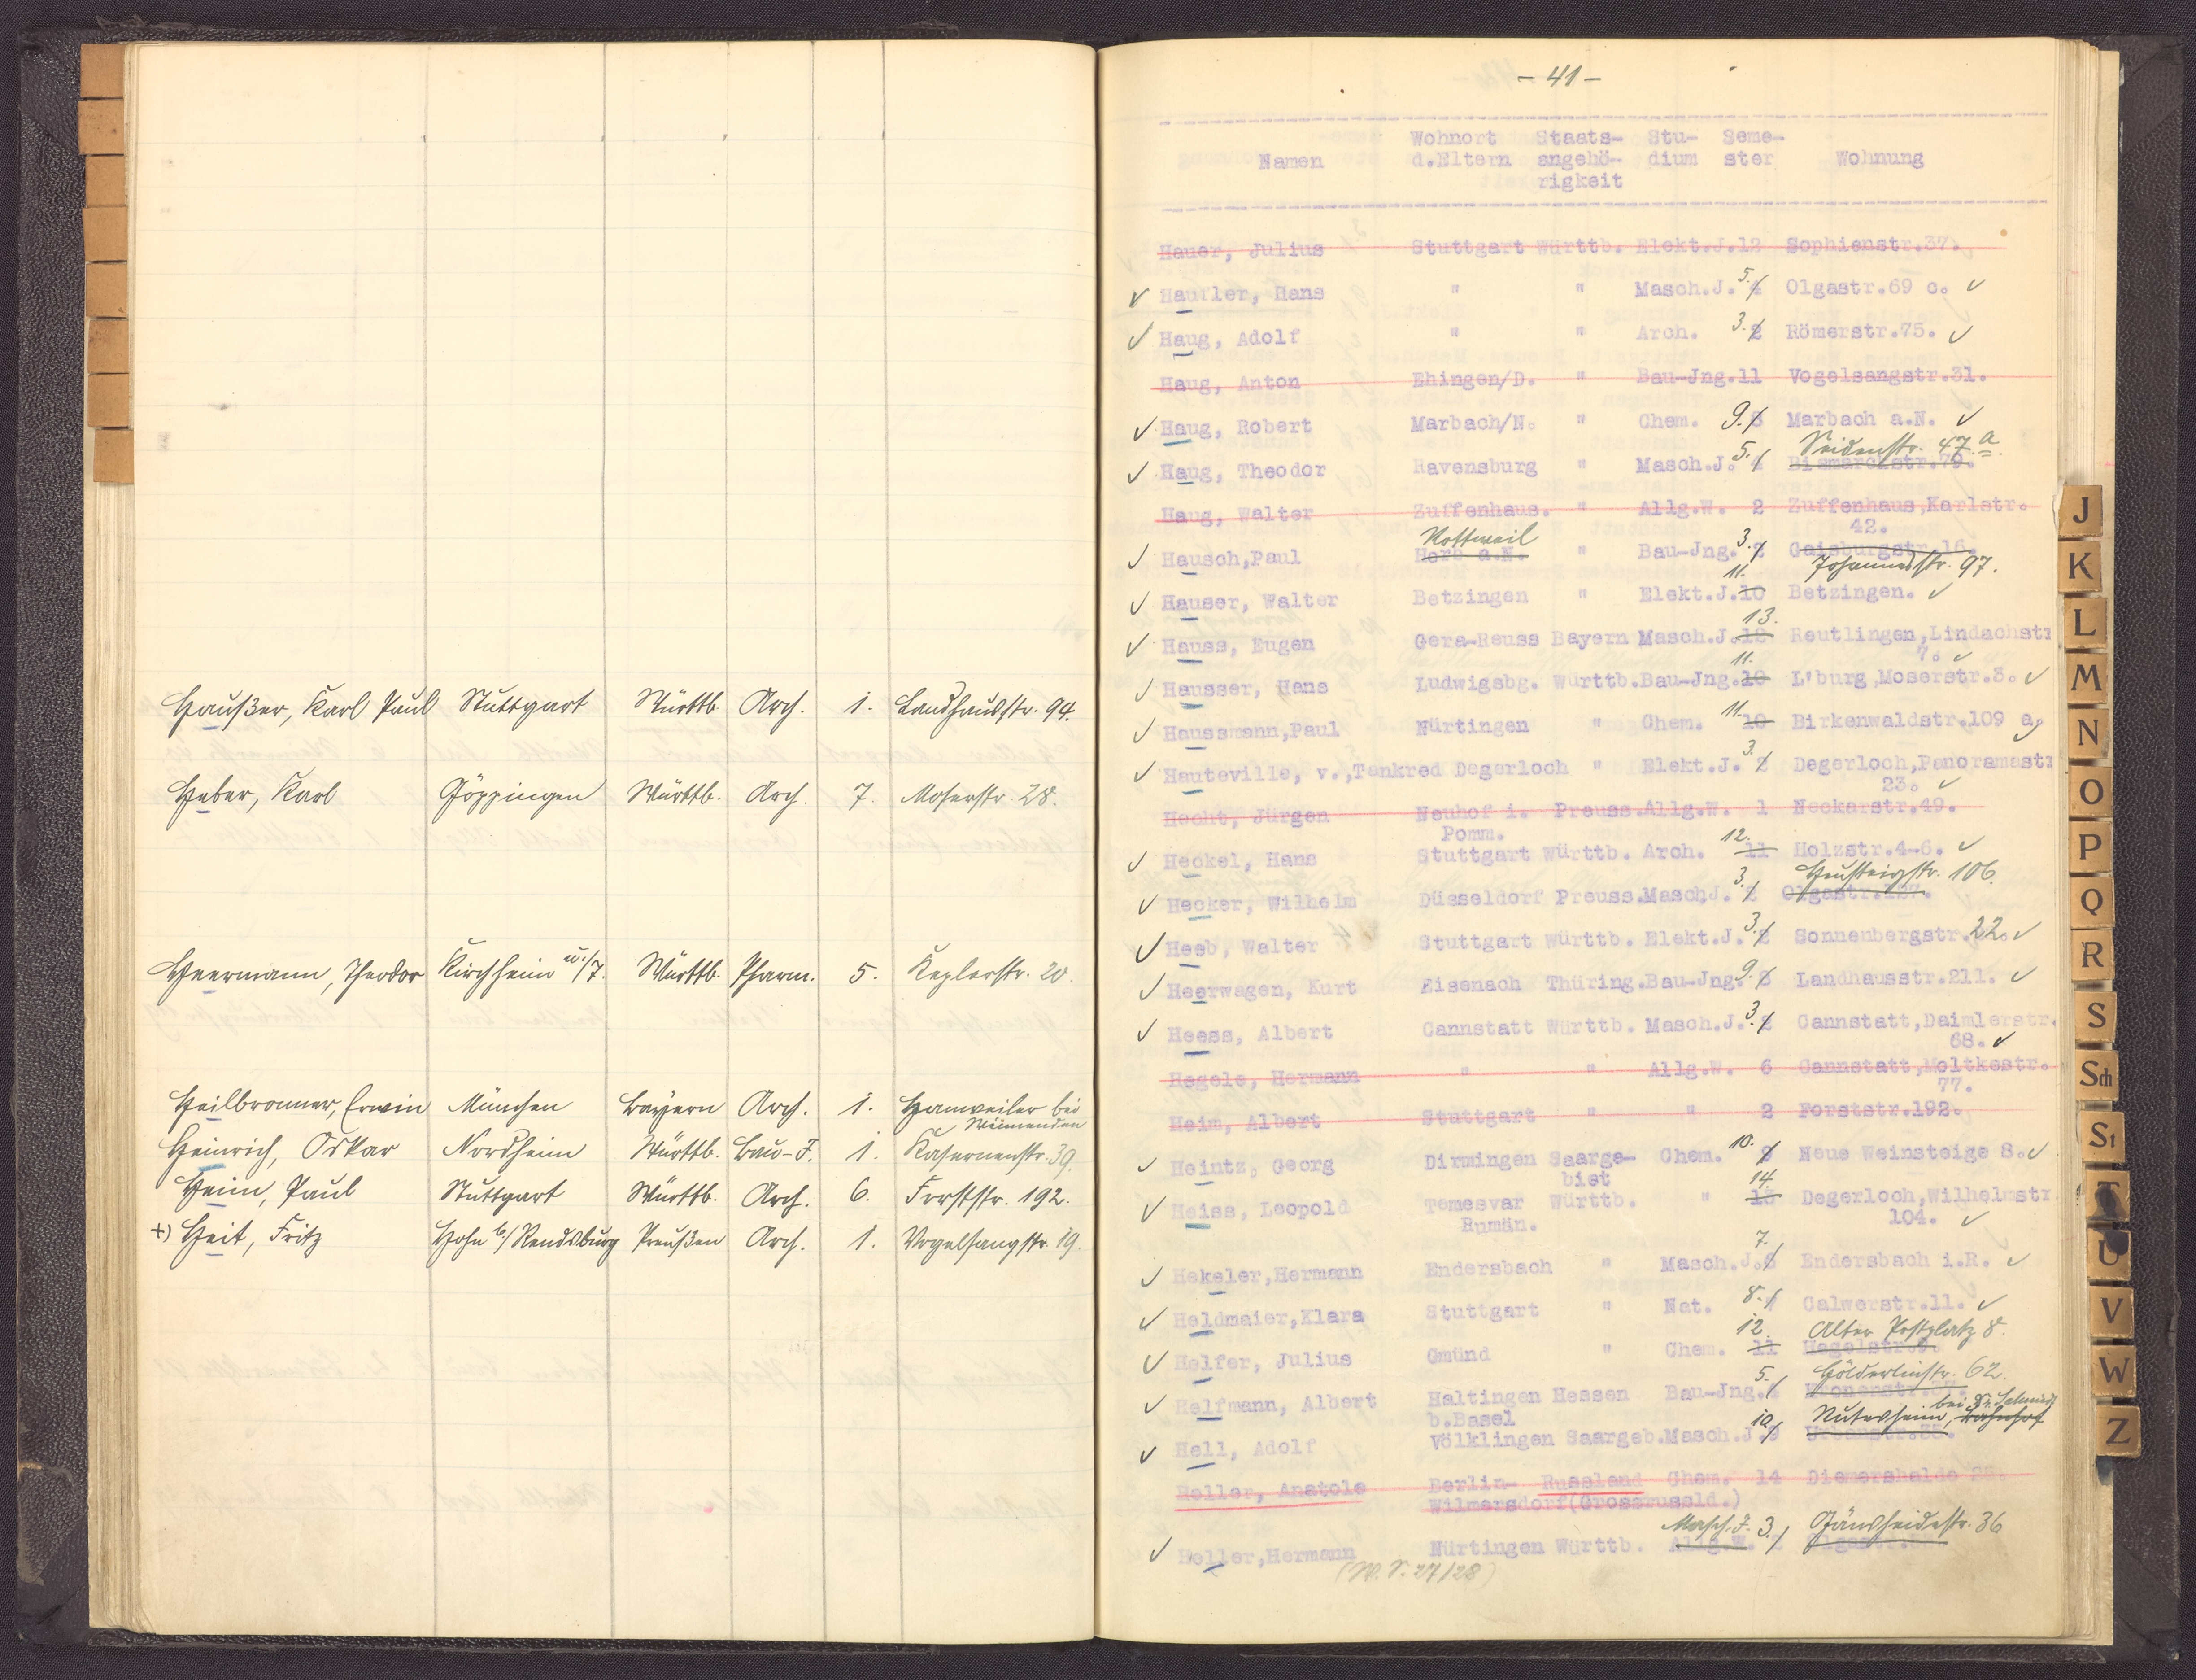 Haußer, Karl Paul Stuttgart Württb. Arch. 1. Landhausstr. 94.
Heber, Karl Göppingen Württb. Arch. 7. Moserstr. 28.
Heermann, Theodor Kirchheim u./T. Württb. Pharm. 5. Keplerstr. 20.
Heilbronner, Erwin München Bayern Arch. 1. Hanweiler bei
Winnenden
Heinrich, Oskar Nordheim Württb. Bau-J. 1. Kasernenstr. 39.
Heim, Paul Stuttgart Württb. Arch. 6. Forststr. 192.
+) Heit, Fritz Hohn b/Rendsburg Preußen Arch. 1. Vogelsangstr. 19.
- 41 -
Wohnort Staats- Stu- Seme-
Namen d.Eltern angehö- dium ster Wohnung
rigkeit
Hauer, Julius Stuttgart Württb. Elekt.J.12 Sophienstr.37.
✓ Haufler, Hans " " Masch.J. 5. 4 Olgastr.69 c. ✓
✓ Haug, Adolf " " Arch. 3. 2 Römerstr.75. ✓
Haug, Anton Ehingen/D. " Bau-Jng.11 Vogelsangstr.31.
✓ Haug, Robert Marbach/N. " Chem. 9. 8 Marbach a.N. ✓
Seidenstr. 47 a.
✓ Haug, Theodor Ravensburg " Masch.J. 5. 4 Bismarckstr.79.
Haug, Walter Zuffenhaus. " Allg.W. 2 Zuffenhaus,Karlstr.
42.
Rottweil
✓ Hausch,Paul Horb a.N. " Bau-Jng. 3. 2 Gaisburgstr.16.
Johannesstr. 97.
✓ Hauser, Walter Betzingen " Elekt.J. 11. 10 Betzingen. ✓
✓ Hauss, Eugen Gera-Reuss Bayern Masch.J. 13. 12 Reutlingen,Lindachstr
7. ✓
✓ Hausser, Hans Ludwigsbg. Württb.Bau-Jng. 11. 10 L'burg,Moserstr.3. ✓
✓ Haussmann,Paul Nürtingen " Chem. 11. 10 Birkenwaldstr.109 a.
✓ Hauteville, v.,Tankred Degerloch " Elekt.J. 3. 2 Degerloch,Panoramastr
23. ✓
Hecht, Jürgen Neuhof i. Preuss.Allg.W. 1 Neckarstr.49.
Pomm.
✓ Heckel, Hans Stuttgart Württb. Arch. 12. 11 Holzstr.4-6. ✓
Heusteigstr. 106.
✓ Hecker, Wilhelm Düsseldorf Preuss.Masch.J. 3. 2 Olgastr.127.
✓ Heeb, Walter Stuttgart Württb. Elekt.J. 3. 2 Sonnenbergstr.22. ✓
✓ Heerwagen, Kurt Eisenach Thüring.Bau-Jng. 9. 8 Landhausstr.211. ✓
✓ Heess, Albert Cannstatt Württb. Masch.J. 3. 2 Cannstatt,Daimlerstr.
68. ✓
Hegele, Hermann " " Allg.W. 6 Cannstatt,Moltkestr.
77.
Heim, Albert Stuttgart " " 2 Forststr.192.
✓ Heintz, Georg Dirmingen Saarge- Chem. 10. 9 Neue Weinsteige 8. ✓
biet
✓ Heiss, Leopold Temesvar Württb. " 14. 13 Degerloch,Wilhelmstr
Rumän. 104. ✓
✓ Hekeler,Hermann Endersbach " Masch.J. 7. 6 Endersbach i.R. ✓
✓ Heldmaier,Klara Stuttgart " Nat. 8. 7 Calwerstr.11. ✓
Alter Postplatz 8.
✓ Helfer, Julius Gmünd " Chem. 12. 11 Hegelstr.
Hölderlinstr. 62.
✓ Helfmann, Albert Haltingen Hessen Bau-Jng. 5. 4
b.Basel Rutesheim, Bahnhof
✓ Hell, Adolf Völklingen Saargeb.Masch.J. 10. 9 Urbanstr.
Heller, Anatole Berlin- Russland Chem. 14 Diemershalde
Wilmersdorf(Grossrussld.)
Masch.J. 3. Gänsheidestr. 36
✓ Heller,Hermann Nürtingen Württb. Allg.W. 2 Olgastr.
(W.S. 27/28)
J
K
L
M
N
O
P
Q
R
S
Sch
St
T
U
V
W
Z